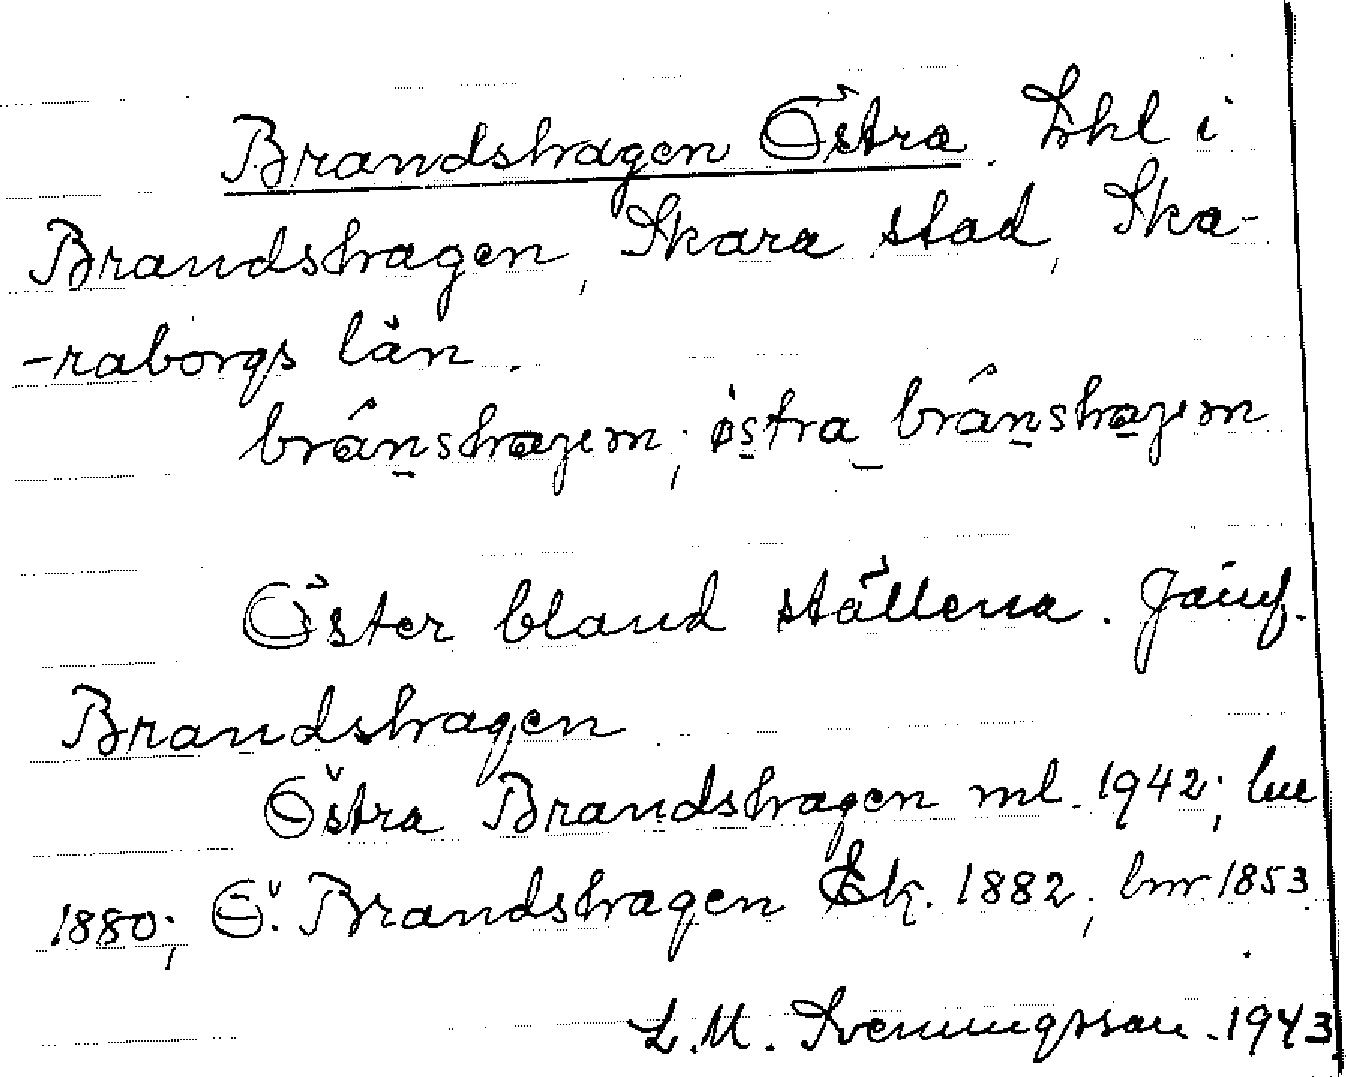 Brandshagen Östra. Lhl i
Brandshagen, Skara stad, Ska-
-raborgs län.
brânshagen; östra brânshagen
Öster bland ställena. Jämf.
Brandshagen
Östra Brandshagen ml. 1942;
1880; Ö. Brandshagen Ek. 1882; lmr 1853
L.M. Svenungsson. 1943